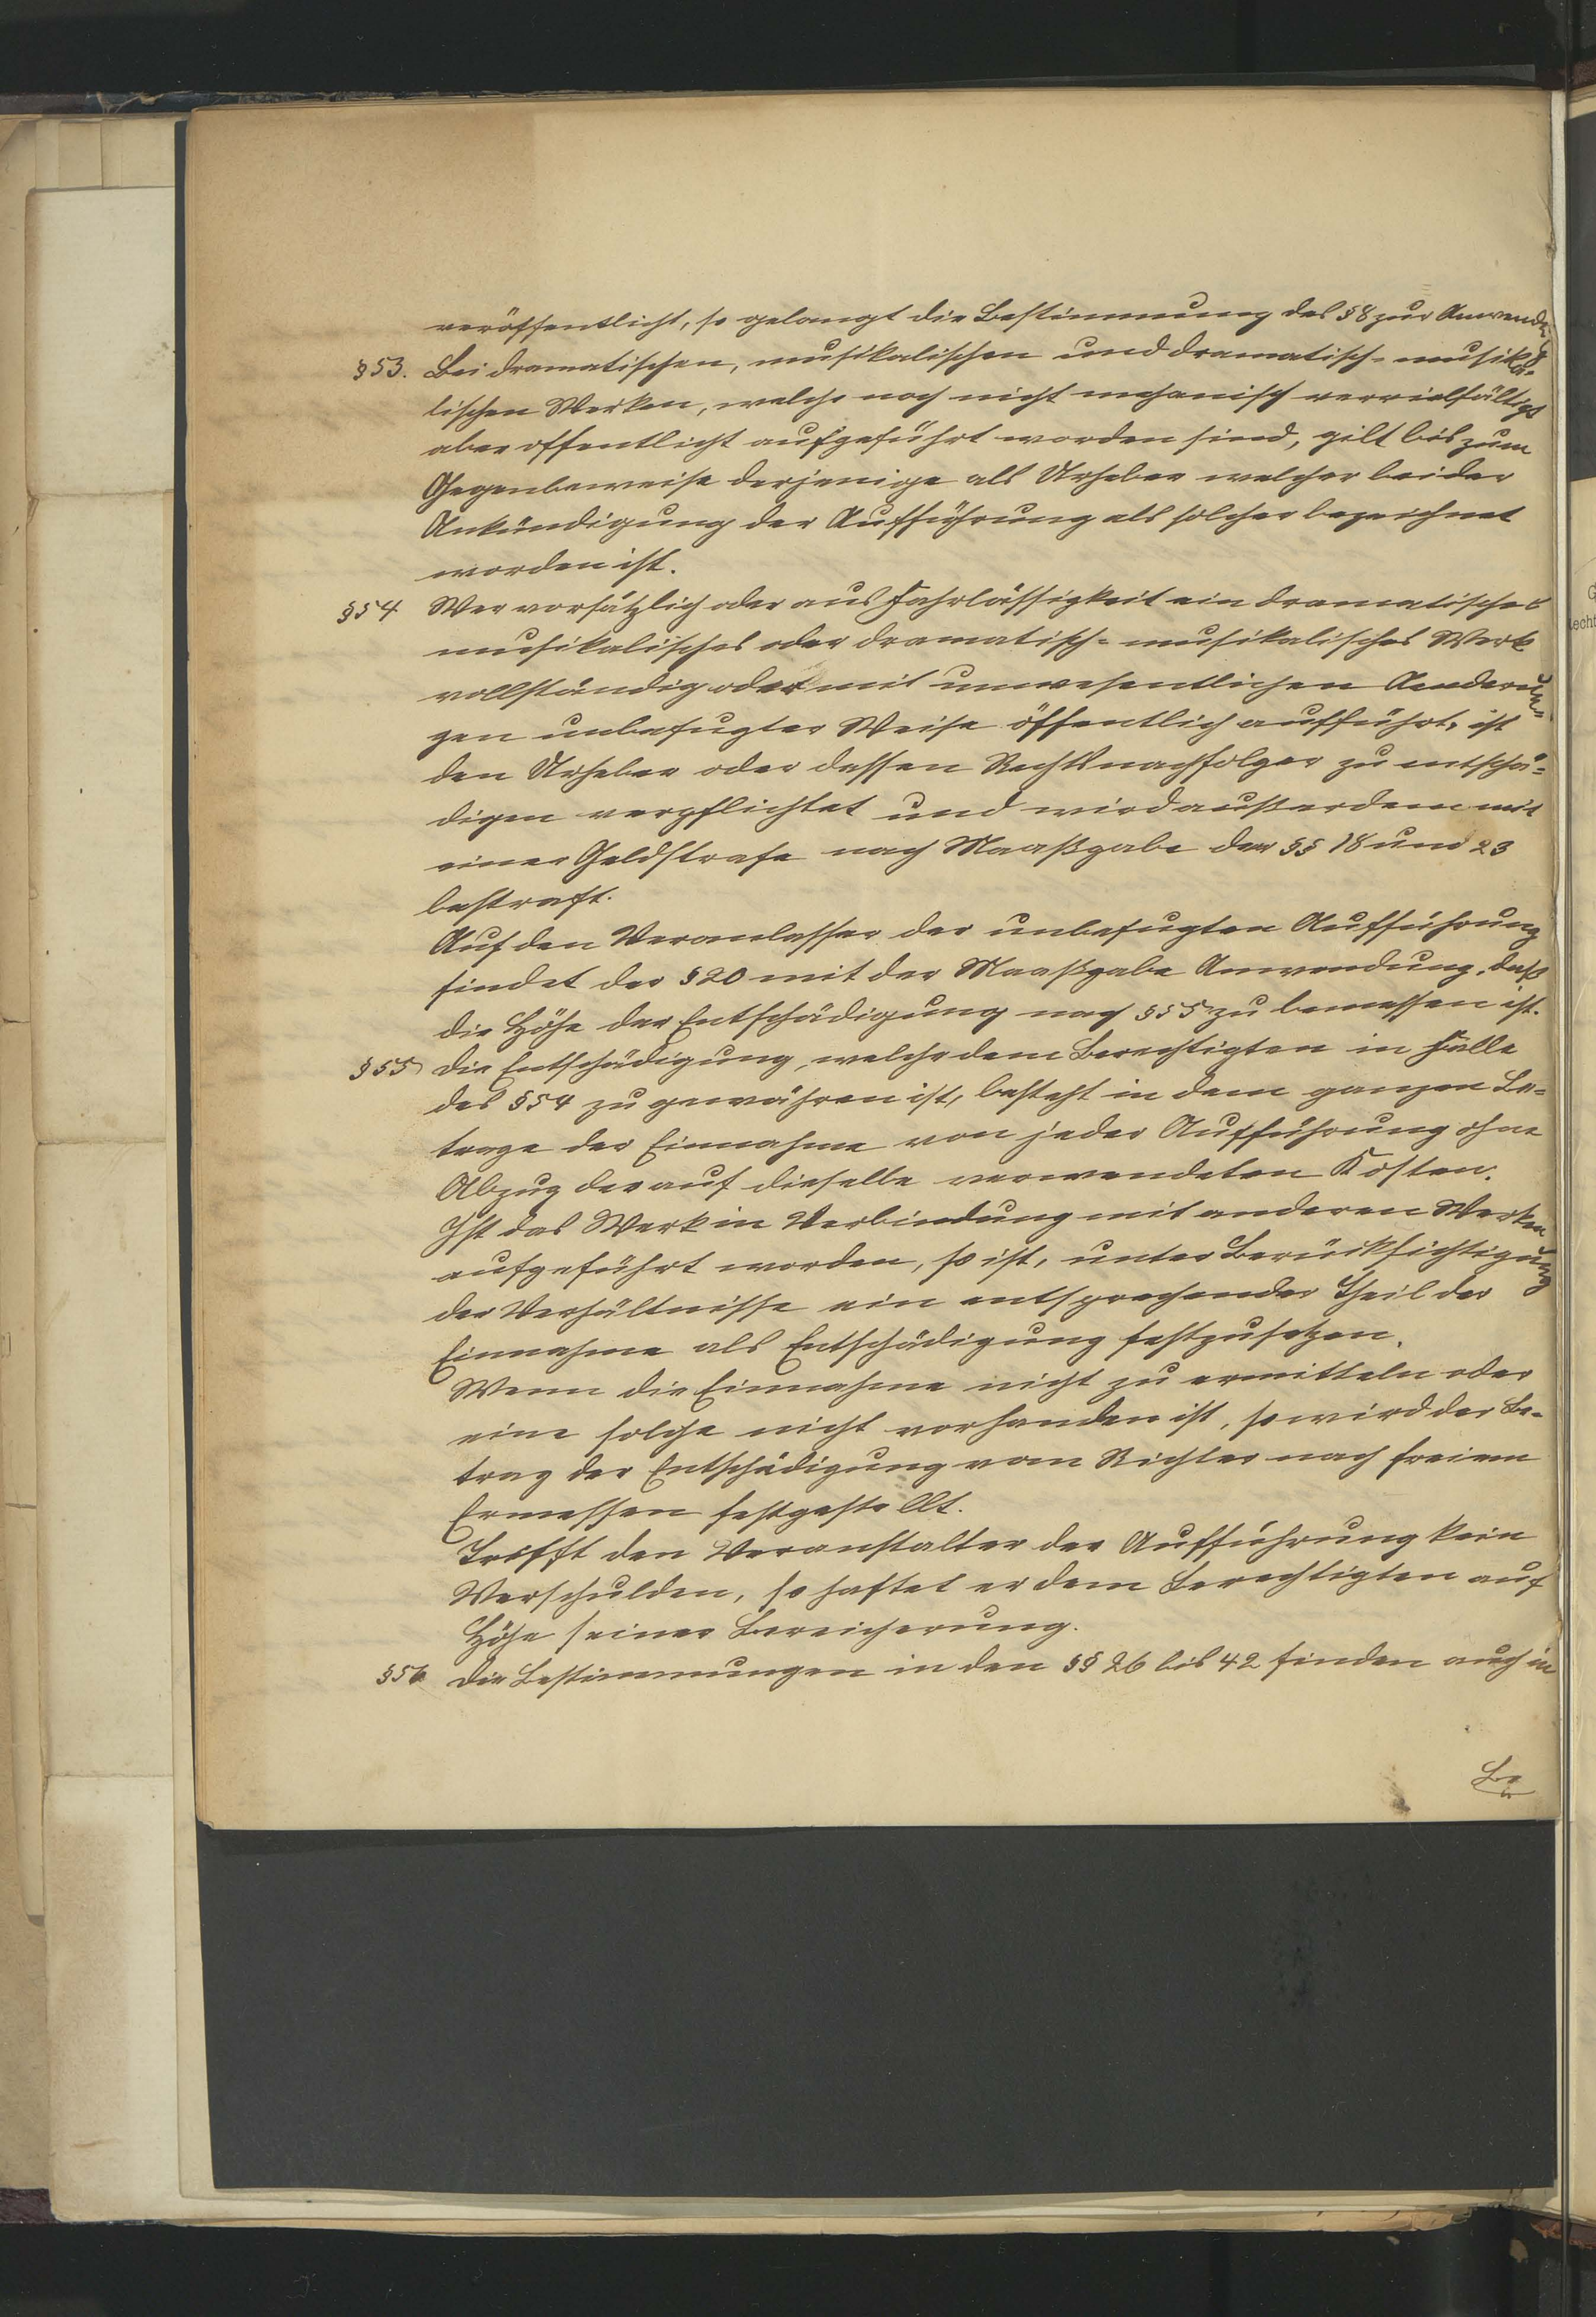 veröffentlicht, so gelangt die Bestimmung des § 8 zur Anwendg
§ 53. Bei dramatischen, musikalischen und dramatisch-musika-
lischen Werken, welche noch nicht mechanisch vervielfältigt
aber offentlicht aufgeführt worden sind, gilt bis zum
Gegenbeweise derjenige als Urheber welcher bei der
Ankündigung der Aufführung als solcher bezeichnet
worden ist.
§ 54 Wer vorsätzlich oder aus Fahrlässigkeit ein dramatisches
musikalisches oder dramatisch-musikalisches Werk
vollständig oder mit unwesentlichen Aenderun-
gen unbefugter Weise öffentlich aufführt, ist
den Urheber oder dessen Rechtsnachfolger zu entschä-
digen verpflichtet und wird außerdem mit
einer Geldstrafe nach Maaßgabe der §§ 18 und 23
bestraft.
Auf den Veranlasser der unbefugten Aufführung
findet der § 20 mit der Maaßgabe Anwendung, daß
die Höhe der Entschädigung nach § 55 zu bemessen ist.
§ 55 Die Entschädigung, welche dem Berechtigten in Falle
des § 54 zu gewähren ist, besteht in dem ganzen Be-
trage der Einnahme von jeder Aufführung ohne
Abzug der auf dieselbe verwendeten Kosten.
Ist das Werk in Verbindung mit anderen Werken
aufgeführt worden, so ist, unter Berücksichtigung
der Verhältnisse ein entsprechender Theil der
Einnahme als Entschädigung festzusetzen.
Wenn die Einnahme nicht zu ermitteln oder
eine solche nicht vorhanden ist, so wird der Be-
trag der Entschädigung vom Richter nach freiem
Ermessen festgestellt.
Trifft den Veranstalter der Aufführung kein
Verschulden, so haftet er dem Berechtigten auf
Höhe seiner Bereicherung.
§ 56 Die Bestimmungen in den §§ 26 bis 42 finden auch in
Be